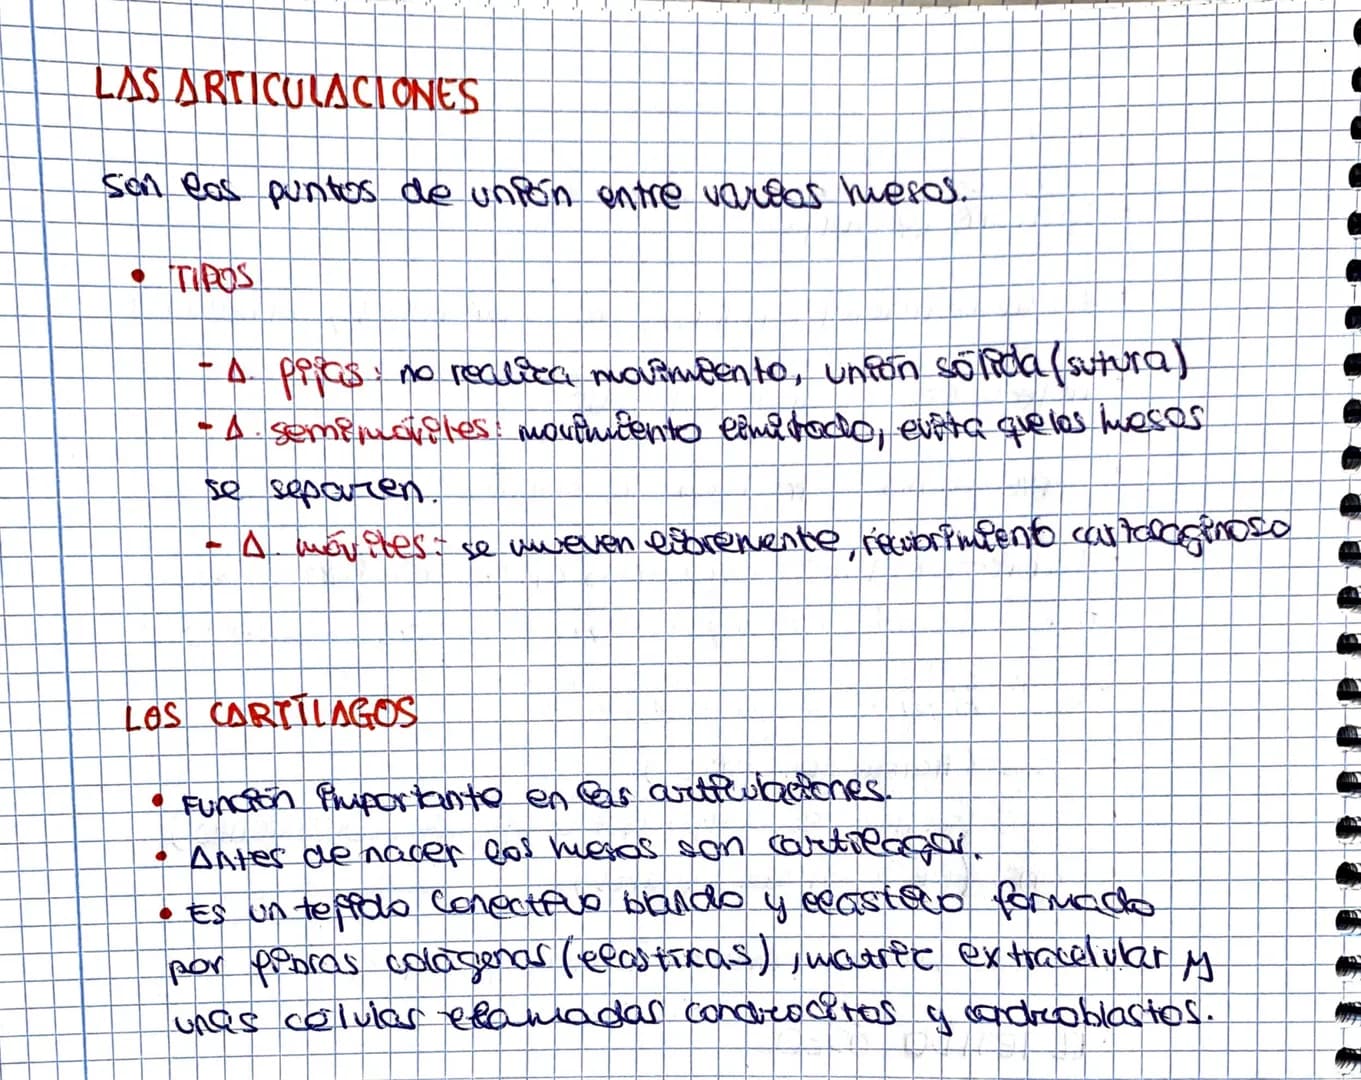 LAS ARTICULACIONES
son los puntos de unión entre varios huesos.
• TIPOS
- A. fijas: no realiza movimiento, unión sólida (sutura)
- A. semimóviles: movimiento limitado, evita que los huesos
se separen.
- A. móviles: se mueven libremente, recubrimiento cartilaginoso
LOS CARTÍLAGOS
• Función importante en las articulaciones.
• Antes de nacer los huesos son cartílagos.
• Es un tejido conectivo blando y elástico formado
por fibras colágenas (elásticas), matriz extracelular y
unas células llamadas condrocitos y condroblastos.